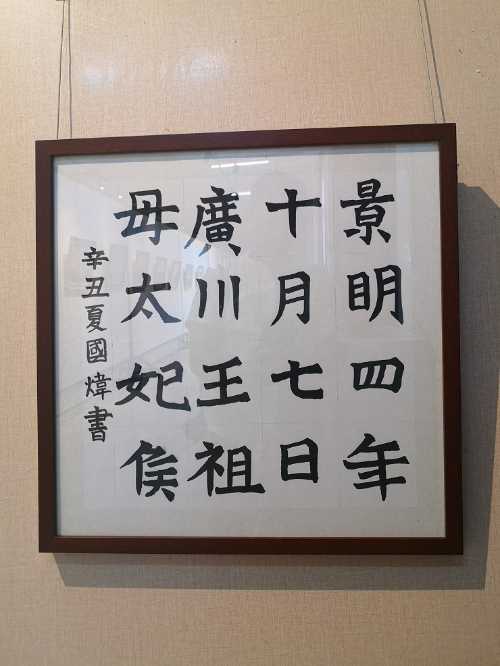 景明四年
十月七日
廣川王祖
母太妃侯
辛丑夏國煒書